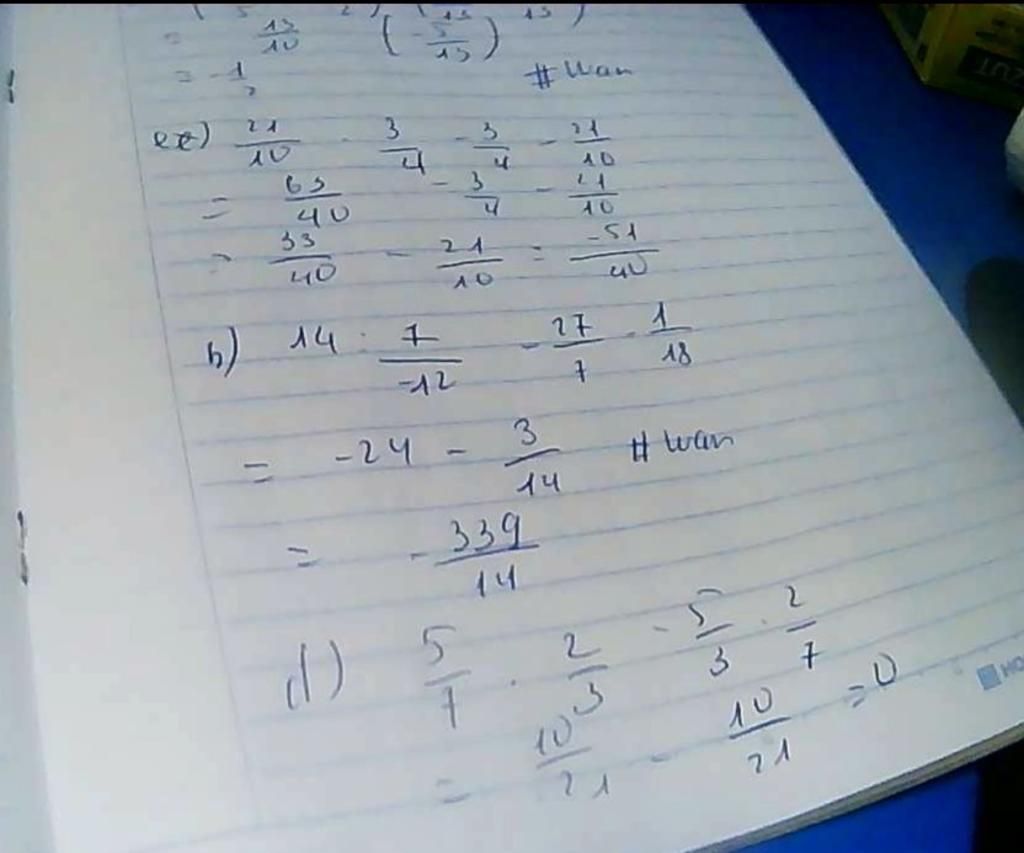 = 13/10 (-5/13)
= -1/2 #Wan
a) 21/10 · 3/4 - 3/4 - 21/10
= 63/40 - 3/4 - 21/10
= 33/40 - 21/10 = -51/40
b) 14 · 7/-12 - 27/7 · 1/18
= -24 - 3/14 #Wan
= -339/14
d) 5/7 · 2/3 - 5/3 · 2/7
= 10/21 - 10/21 = 0